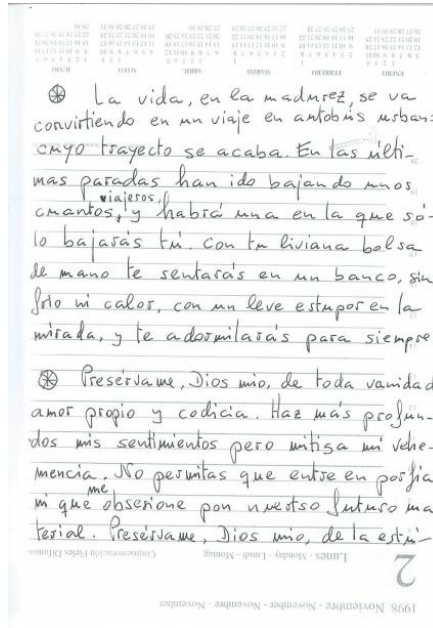 La vida, en la madurez, se va
convirtiendo en un viaje en autobús urbano
cuyo trayecto se acaba. En las últi-
mas paradas han ido bajando unos
viajeros,
cuantos, y habrá una en la que só-
lo bajarás tú. Con tu liviana bolsa
de mano te sentarás en un banco, sin
frío ni calor, con un leve estupor en la
mirada, y te adormilarás para siempre
Presérvame, Dios mío, de toda vanidad
amor propio y codicia. Haz más profun-
dos mis sentimientos pero mitiga mi vehe-
mencia. No permitas que entre en porfía
me
ni que obsesione por nuestro futuro ma
terial. Presérvame, Dios mío, de la estri-
Lunes - Monday - Lundi - Montag
Conmemoración Fieles Difuntos
2
1998 Noviembre - November - Novembre - November
ENERO FEBRERO MARZO ABRIL MAYO JUNIO